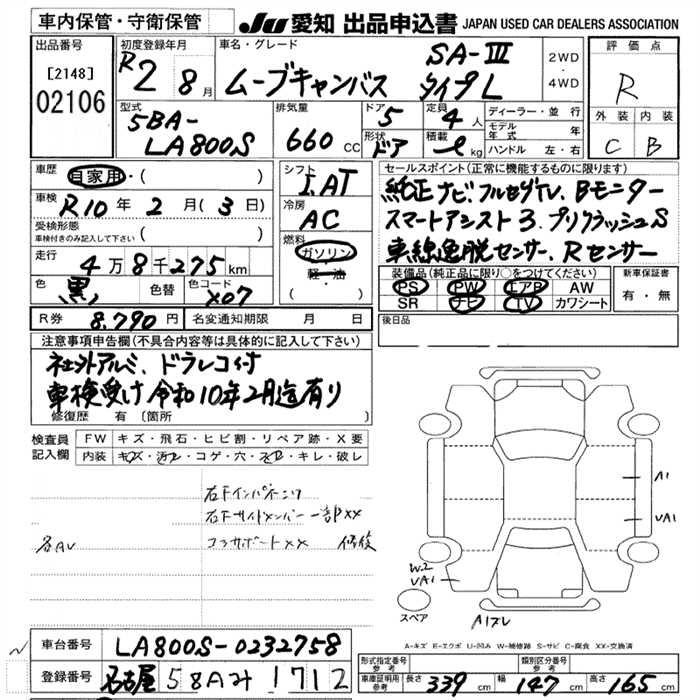 車内保管・守衛保管
JU 愛知 出品申込書 JAPAN USED CAR DEALERS ASSOCIATION
出品番号
[2148]
02106
初度登録年月
R2 8月
車名・グレード
ムーブキャンバス SA-III タイプL
2WD ・ 4WD
評価点
R
外装 内装
C B
型式
5BA-
LA800S
排気量
660 CC
ドア 5
形状 ドア
定員 4人
積載 -ℓ kg
ディーラー・並行
モデル年式 年
ハンドル 左・右
車歴
自家用・( )
車検
R10年 2月(3日)
受検形態
車検付きのみ記入して下さい ( )
走行
4万8千275km
色 黒 色替 色コード X07
シフト
I.AT
冷房
AC
燃料
ガソリン
軽・油
( )
R券 8,790円 名変通知期限 月 日
セールスポイント(正常に機能するものに限ります)
純正ナビ、フルセグTV、Bモニター
スマートアシスト3、プリクラッシュS
車線逸脱センサー、Rセンサー
装備品(純正品に限り○をつけてください)
PS PW エアB AW
SR ナビ TV カワシート
新車保証書
有・無
後日品
注意事項申告欄(不具合内容等は具体的に記入して下さい)
社外アルミ、ドラレコ付
車検受け令和10年2月迄有り
修復歴 有 〔箇所 〕
検査員記入欄
FW キズ・飛石・ヒビ割・リペア跡・X要
内装 キズ・汚レ・コゲ・穴・スレ・キレ・破レ
右Fインパネ
右Fサイドメンバー一部XX
コアサポートXX 修復
各AU
A1
UA1
W2
UA1
スペア
A1スレ
A-キズ E-エクボ U-凹み W-補修跡 S-サビ C-腐食 XX-交換済
車台番号 LA800S-0232758
登録番号 名古屋 58A み 1712
形式指定番号 参考
類別区分番号 参考
車庫証明用 参考 長さ 339cm 幅 147cm 高さ 165cm